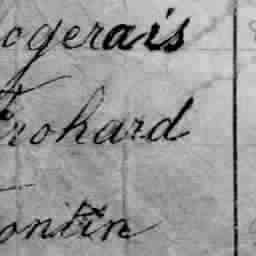 ogerais
rohard
ontin